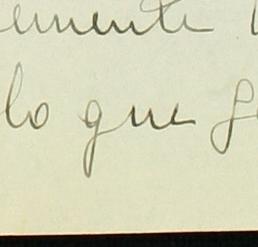 emente
lo que